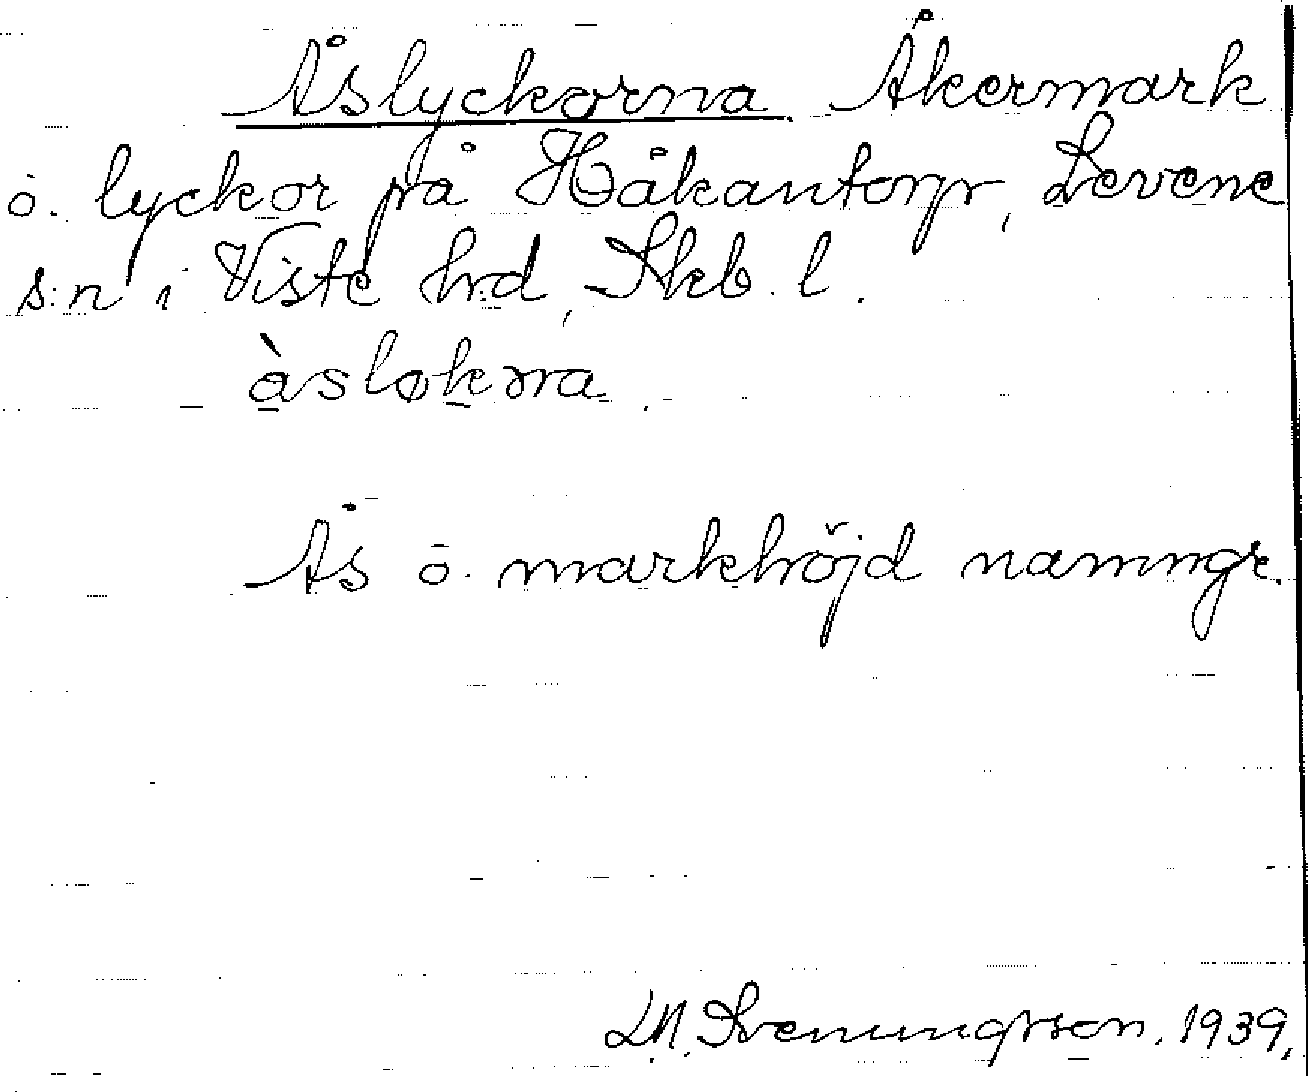 Åslyckorna Åkermark
o. lyckor på Håkantorp, Levene
s:n i Viste hrd, Skb. l.
àslokrna.
Ås o. markhöjd namngr.
L.M. Svenungsson. 1939.